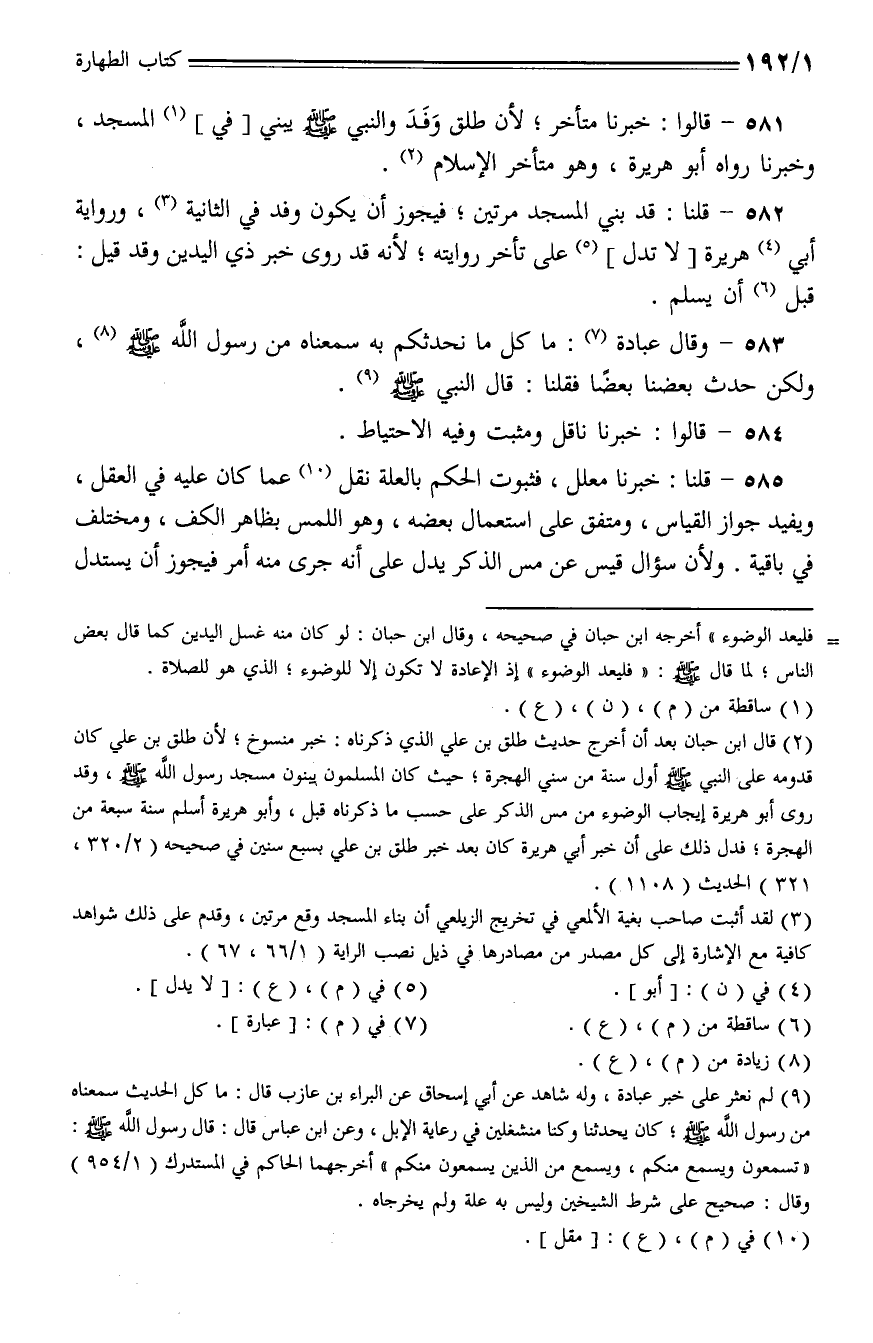 ١٩٢/١ كتاب الطهارة
٥٨١ – قالوا : خبرنا متأخر ؛ لأن طلق وَفَدَ والنبي ﷺ يبني [ في ] (١) المسجد ،
وخبرنا رواه أبو هريرة ، وهو متأخر الإسلام (٢) .
٥٨٢ – قلنا : قد بني المسجد مرتين ؛ فيجوز أن يكون وفد في الثانية (٣) ، ورواية
أبي (٤) هريرة [ لا تدل ] (٥) على تأخر روايته ؛ لأنه قد روى خبر ذي اليدين وقد قيل :
قبل (٦) أن يسلم .
٥٨٣ – وقال عبادة (٧) : ما كل ما نحدثكم به سمعناه من رسول اللَّه ﷺ (٨) ،
ولكن حدث بعضنا بعضًا فقلنا : قال النبي ﷺ (٩) .
٥٨٤ – قالوا : خبرنا ناقل ومثبت وفيه الاحتياط .
٥٨٥ – قلنا : خبرنا معلل ، فثبوت الحكم بالعلة نقل (١٠) عما كان عليه في العقل ،
ويفيد جواز القياس ، ومتفق على استعمال بعضه ، وهو اللمس بظاهر الكف ، ومختلف
في باقية . ولأن سؤال قيس عن مس الذكر يدل على أنه جرى منه أمر فيجوز أن يستدل
= فليعد الوضوء » أخرجه ابن حبان في صحيحه ، وقال ابن حبان : لو كان منه غسل اليدين كما قال بعض
الناس ؛ لما قال ﷺ : « فليعد الوضوء » إذ الإعادة لا تكون إلا للوضوء ؛ الذي هو للصلاة .
(١) ساقطة من ( م ) ، ( ن ) ، ( ع ) .
(٢) قال ابن حبان بعد أن أخرج حديث طلق بن علي الذي ذكرناه : خبر منسوخ ؛ لأن طلق بن علي كان
قدومه على النبي ﷺ أول سنة من سني الهجرة ؛ حيث كان المسلمون يبنون مسجد رسول اللَّه ﷺ ، وقد
روى أبو هريرة إيجاب الوضوء من مس الذكر على حسب ما ذكرناه قبل ، وأبو هريرة أسلم سنة سبعة من
الهجرة ؛ فدل ذلك على أن خبر أبي هريرة كان بعد خبر طلق بن علي بسبع سنين في صحيحه ( ٣٢٠/٢ ،
٣٢١ ) الحديث ( ١١٠٨ ) .
(٣) لقد أثبت صاحب بغية الألمعي في تخريج الزيلعي أن بناء المسجد وقع مرتين ، وقدم على ذلك شواهد
كافية مع الإشارة إلى كل مصدر من مصادرها في ذيل نصب الراية ( ٦٦/١ ، ٦٧ ) .
(٤) في ( ن ) : [ أبو ] . (٥) في ( م ) ، ( ع ) : [ لا يدل ] .
(٦) ساقطة من ( م ) ، ( ع ) . (٧) في ( م ) : [ عبارة ] .
(٨) زيادة من ( م ) ، ( ع ) .
(٩) لم نعثر على خبر عبادة ، وله شاهد عن أبي إسحاق عن البراء بن عازب قال : ما كل الحديث سمعناه
من رسول اللَّه ﷺ ؛ كان يحدثنا وكنا منشغلين في رعاية الإبل ، وعن ابن عباس قال : قال رسول اللَّه ﷺ :
« تسمعون ويسمع منكم ، ويسمع من الذين يسمعون منكم » أخرجهما الحاكم في المستدرك ( ٩٥٤/١ )
وقال : صحيح على شرط الشيخين وليس به علة ولم يخرجاه .
(١٠) في ( م ) ، ( ع ) : [ مقل ] .